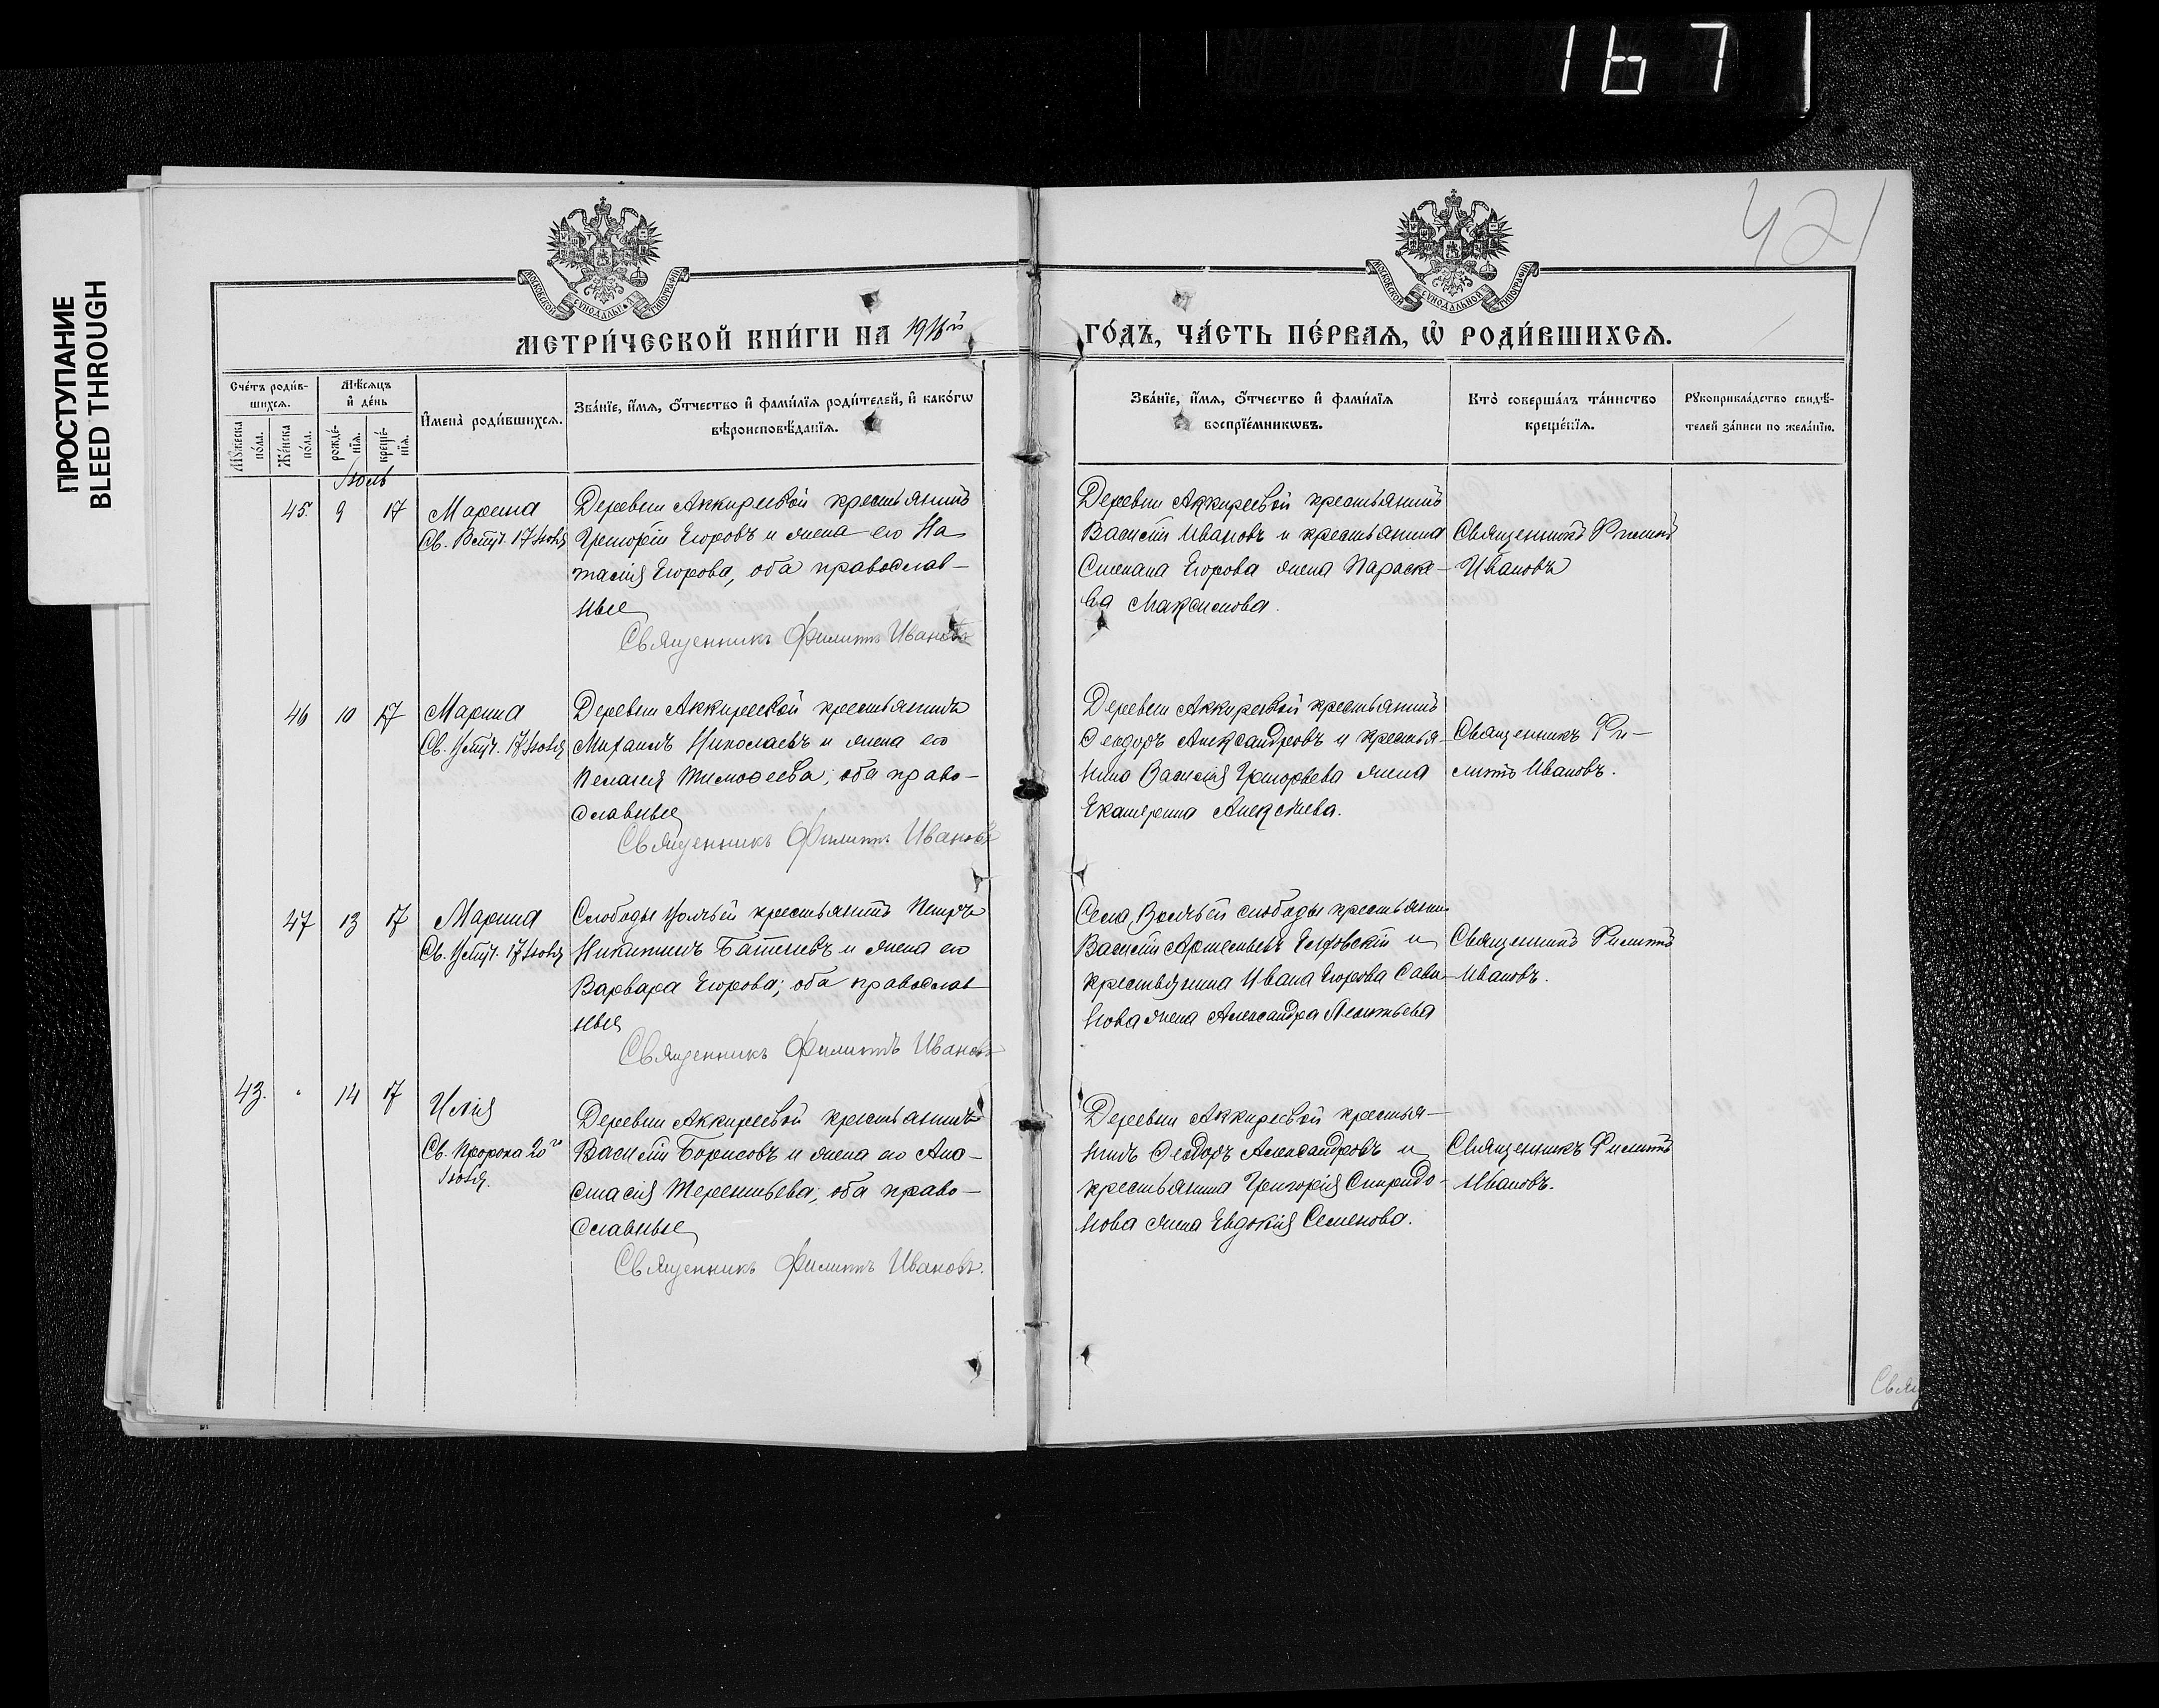 167
ПРОСТУПАНИЕ
BLEED THROUGH
421
МОСКОВСКОЙ СѴНОДАЛЬНОЙ ТИПОГРАФІИ
МОСКОВСКОЙ СѴНОДАЛЬНОЙ ТИПОГРАФІИ
МЕТРИ́ЧЕСКОЙ КНИ́ГИ НА 1916й ГО́ДЪ, ЧА́СТЬ ПЕ́РВАѦ, Ѽ РОДИ́ВШИХСѦ.
Сче́тъ роди́в-
шихсѧ.
Мꙋ́жеска по́ла.
Же́нска по́ла.
Мѣ́сѧцъ
и҆ де́нь
рожде́-
нїѧ.
креще́-
нїѧ.
И҆мена̀ роди́вшихсѧ.
Зва́нїе, и҆́мѧ, ѻ҆́тчество и҆ фами́лїѧ роди́телей, и҆ како́гѡ
вѣроисповѣ́данїѧ.
Зва́нїе, и҆́мѧ, ѻ҆́тчество и҆ фами́лїѧ
воспрїе́мникѡвъ.
Кто̀ соверша́лъ та́инство
креще́нїѧ.
Рꙋкоприкла́дство свидѣ́-
телей за́писи по жела́нїю.
Іюль
45. 9 17 Марина
Св. 17 Іюля
Деревни Аккиреевой крестьянинъ
Григорій Егоровъ и жена его На
талія Егорова, оба православ-
ные
Священникъ Филиппъ Ивановъ
Деревни Аккиреевой крестьянинъ
Василій Ивановъ и крестьянина
Степана Егорова жена Параске-
ва Максимова.
Священникъ Филиппъ
Ивановъ
46 10 17 Марина
Св. 17 Іюля
Деревни Аккиреевой крестьянинъ
Михаилъ Николаевъ и жена его
Пелагія Тимофеева; оба право-
славные
Священникъ Филиппъ Ивановъ
Деревни Аккиреевой крестьянинъ
Ѳеодоръ Александровъ и крестья-
нина Василія Григорьева жена
Екатерина Алексѣева.
Священникъ Фи-
липпъ Ивановъ.
47 13 17 Марина
Св. 17 Іюля
Слободы Волчьей крестьянинъ Петръ
Никитинъ и жена его
Варвара Егорова; оба православ
ные
Священникъ Филиппъ Ивановъ
Села, Волчьей слободы крестьянин
Василій Артемьевъ и
крестьянина Ивана Егорова Сави-
нова жена Александра Леонтьева
Священникъ Филиппъ
Ивановъ.
43. " 14 17 Илія
Св. Пророка 20го
Іюля.
Деревни Аккиреевой крестьянинъ
Василій Борисовъ и жена его Ана-
стасія Терентьева; оба право-
славные
Священникъ Филиппъ Ивановъ.
Деревни Аккиреевой крестья-
нинъ Ѳеодоръ Александровъ и
крестьянина Григорія Спиридо-
нова жена Евдокія Семенова.
Священникъ Филиппъ
Ивановъ.
Свящ